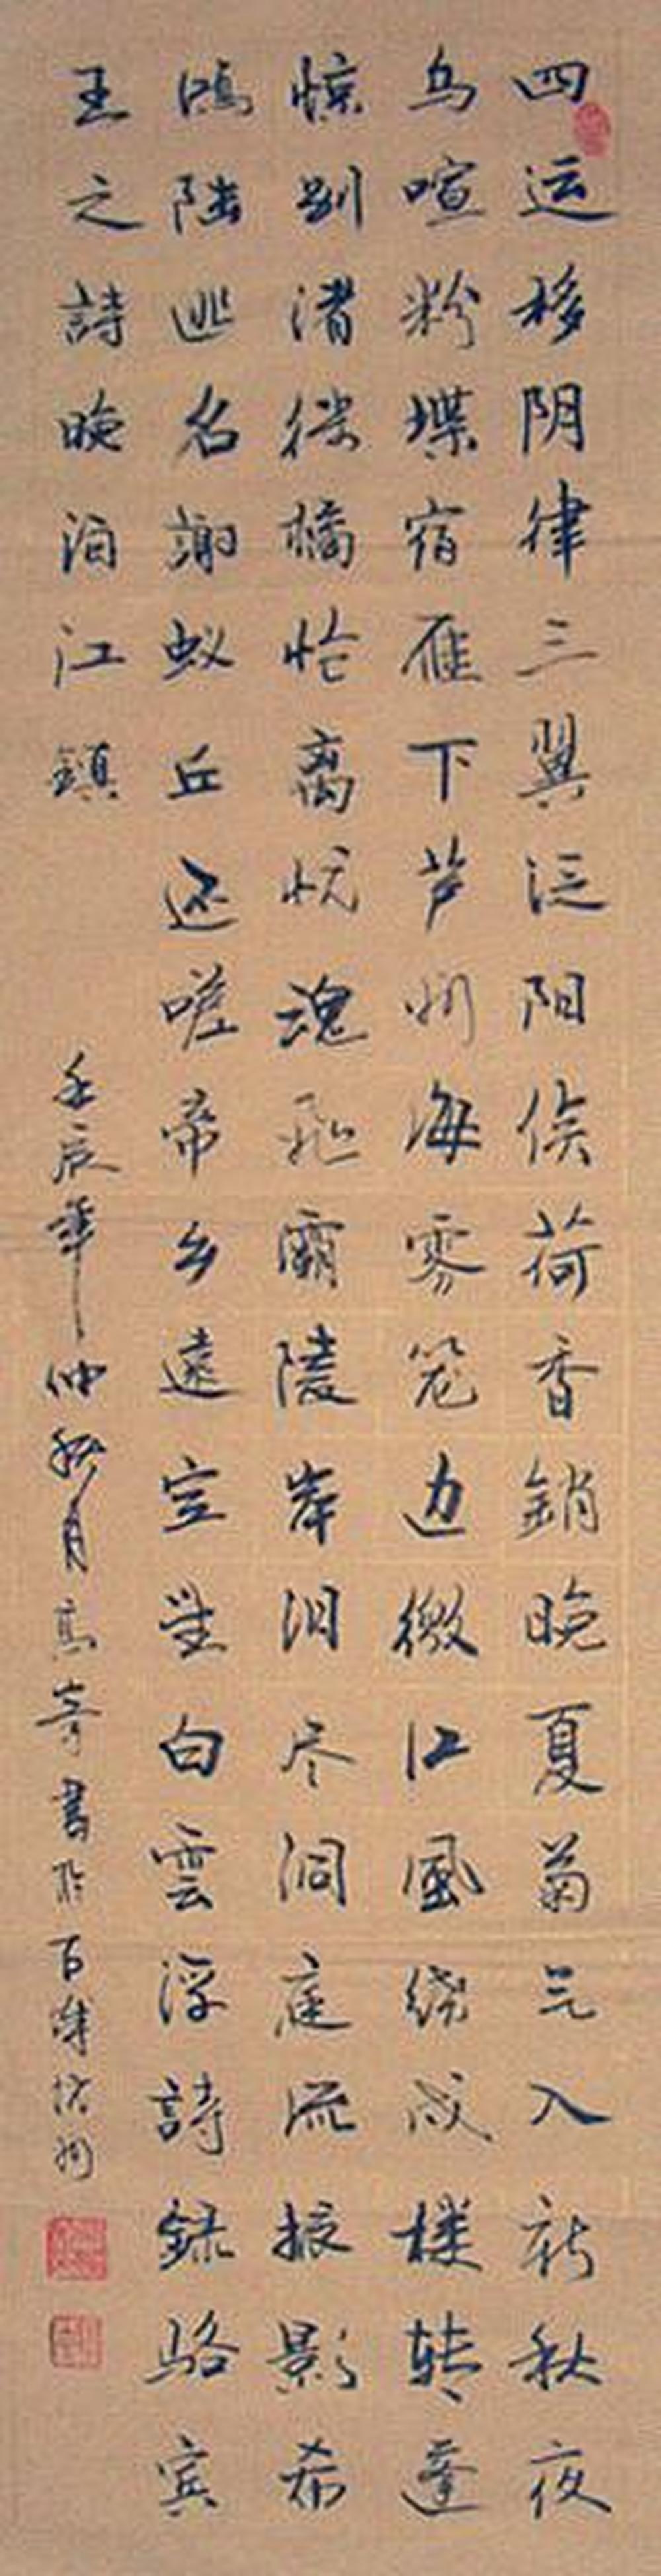 四运移阴律三翼泛阳侯荷香销晚夏菊气入新秋夜
乌喧粉堞宿雁下芦洲海雾笼边徼江風绕戍楼转蓬
惊别渚徙橘怆离忧魂飞霸陵岸泪尽洞庭流振影希
鸿陆逃名謝蚁丘还嗟帝乡遠空望白雲浮詩録骆宾
王之詩晚泊江鎮 壬辰年仲秋月高奇書於百